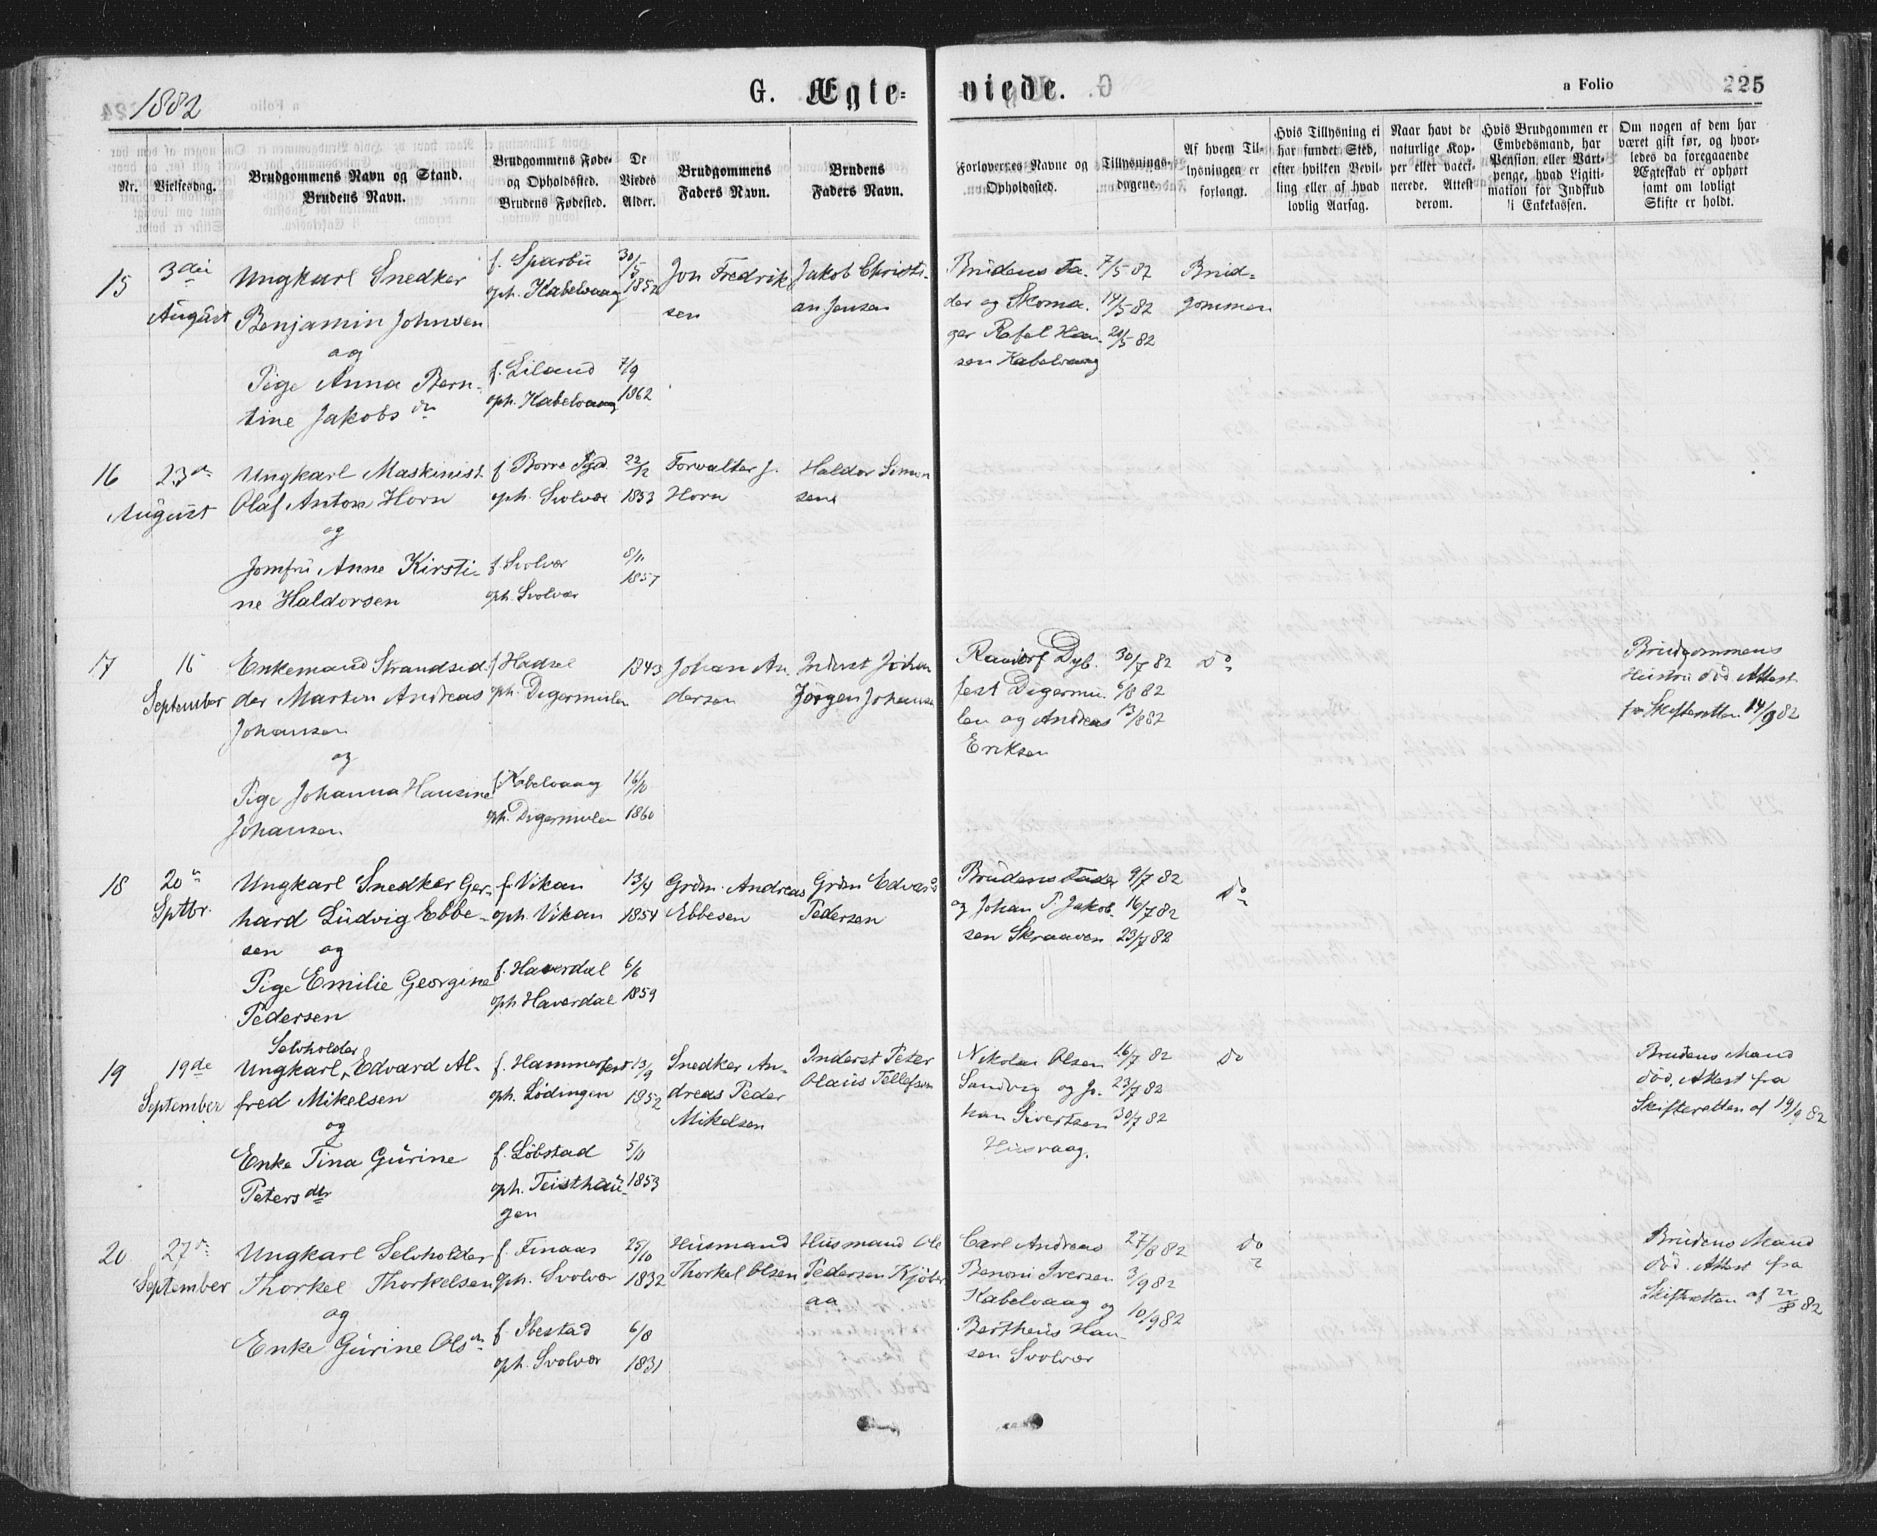 1882
G. Ægte-
viede.
a Folio 225
Nr.
Vielsesdag.
Brudgommens Navn og Stand.
Brudens Navn.
Brudgommens Føde-
og Opholdssted.
Brudens Fødested.
De
Viedes
Alder.
Brudgommens
Faders Navn.
Brudens
Faders Navn.
Forloveres Navne og
Opholdssted.
Tillysnings-
dagene.
Af hvem Til-
lysningen er
forlangt.
Hvis Tillysning ei
har fundet Sted,
efter hvilken Bevil-
ling eller af hvad
lovlig Aarsag.
Naar havt de
naturlige Kop-
per eller vacci-
nerede. Attest
derom.
Hvis Brudgommen er
Embedsmand, har
Pension eller Vart-
penge, hvad Ligiti-
mation for Indskud
i Enkekassen.
Om nogen af dem har
været gift før, og hvor-
ledes da foregaaende
Ægteskab er ophørt
samt om lovligt
Skifte er holdt.
15
3die
August
Ungkarl Snedker
Benjamin Johnsen
og
Pige Anna Bern-
tine Jakobs dr
f. Sparbu
oph. Kabelvaag
f. Liland
oph. Kabelvaag
30/5
1852
7/9
1862
Jon Fredrik
sen
Jakob Christi-
an Jensen
Brudens Fa-
der og Skoma-
ger Rafel Han-
sen Kabelvaag
7/5 82
14/5 82
21/5 82
Brud-
gommen
16
23de
August
Ungkarl Maskinist
Olaf Anton Horn
og
Jomfru Anne Kirsti-
ne Haldorsen
f. Borre Pgd.
oph. Svolvær
f. Svolvær
oph. Svolvær
22/12
1853
8/11
1857
Forvalter J.
Horn
Haldor Simon
sen
17
16
September
Enkemand Strandsid
der Marten Andreas
Johansen
og
Pige Johanna Hansine
Johansen
f. Hadsel
oph. Digermulen
f. Kabelvaag
oph. Digermulen
1843
16/10
1860
Johan An-
dersen
Inderst Johan
Jørgen Johansen
Dyb-
fest Digermu-
len og Andreas
Eriksen
30/7 82
6/8 82
13/8 82
Do
Brudgommens
Hustru død Attest
fra Skifteretten 14/9 82
18
20de
Sptbr.
Ungkarl Snedker Ger-
hard Ludvig Ebbe-
sen og
Pige Emilie Georgine
Pedersen
f. Vikan
oph. Vikan
f. Haverdal
oph. Haverdal
13/4
1854
6/6
1859
Grdm. Andreas
Ebbesen
Grdm Edvard
Pedersen
Brudens Fader
og Johan P. Jakob-
sen Skraaven
9/7 82
16/7 82
23/7 82
Do
19
19de
September
Selvholder
Ungkarl, Edvard Al-
fred Mikelsen
og
Enke Tina Gurine
Peters dtr
f. Hammerfest
oph. Lødingen
f. Løbstad
oph. Teisthau-
gen
13/9
1852
5/11
1853
Snedker An-
dreas Peder
Mikelsen
Inderst Peter
Olaus Tellefsen
Nikolai Olsen
Sandvig og Jo-
han Sivertsen
Husvaag.
16/7 82
23/7 82
30/7 82
Do
Brudens Mand
død. Attest fra
Skifteretten af 19/9 82
20
27de
September
Ungkarl Selvholder
Thorkel Thorkelsen
og
Enke Gurine Ols dr
f. Finaas
oph. Svolvær
f. Ibestad
oph. Svolvær
25/10
1832
6/8
1831
Husmand
Thorkel Olsen
Husmand Ole
Pedersen Kjøber
aa
Carl Andreas
Benoni Iversen
Kabelvaag og
Bertheus Han-
sen Svolvær
27/8 82
3/9 82
10/9 82
Do
Brudens Mand
død. Attest fra
Skifteretten af 22/8 82